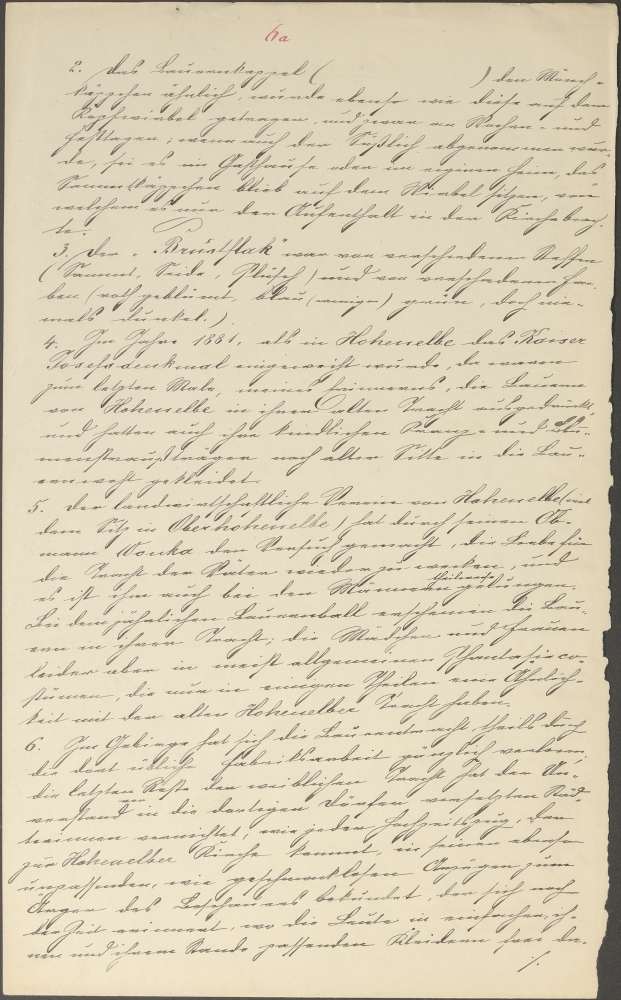 6a
2. Das Bauernkappel (                    ) den Mönch-
käppchen ähnlich, wurde ebenso wie diese auf dem
Kopfwirbel getragen, und zwar an Wochen- und
Festtagen; wenn auch der Hut abgenommen wur-
de, sei es im Gasthause oder im eigenen Heim, das
Sammtkäppchen blieb auf dem Wirbel sitzen, von
welchem es nur der Aufenthalt in der Kirche brach-
te.
3. Der „Brustflak" war von verschiedenen Stoffen
(Sammt, Seide, Plüsch) und von verschiedenen Far-
ben (roth geblümt, blau (wenig) grün, doch nie-
mals dunkel.)
4. Im Jahre 1881, als in Hohenelbe das Kaiser
Josefsdenkmal eingeweiht wurde, da waren
zum letzten Male, meines Erinnerns, die Bauern
von Hohenelbe in ihrer alten Tracht ausgerückt
und hatten auch ihre kindlichen Kranz- und Blu-
mensträußträger nach alter Sitte in die Bau-
erntracht gekleidet.
5. Der landwirtschaftliche Verein von Hohenelbe (mit
dem Sitz in Oberhohenelbe) hat durch seinen Ob-
mann Wonka den Versuch gemacht, die Liebe für
die Tracht der Väter wieder zu wecken, und
es ist ihm auch bei den Männern theilweise gelungen.
Bei dem jährlichen Bauernball erscheinen die Bau-
ern in ihrer Tracht; die Mädchen und Frauen
leider aber in meist allgemeinen Phantasieco-
stümen, die nur in einigen Theilen eine Ähnlich-
keit mit der alten Hohenelber Tracht haben.
6. Im Gebirge hat sich die Bauerntracht, theils durch
die dort übliche Fabriksarbeit gänzlich verloren,
die letzten Reste der weiblichen Tracht hat der Un-
verstand in die dortigen Dörfer versetzten Näh-
terinnen vernichtet, wie jeder Hochzeitszug, der
zur Hohenelber Kirche kommt, in seinen ebenso
unpassenden, wie geschmacklosen Anzügen zum
Ärger des Beschauers bekundet, der sich noch
der Zeit erinnert, wo die Leute in einfachen, ih-
nen und ihrem Stande passenden Kleidern frei da-
./.